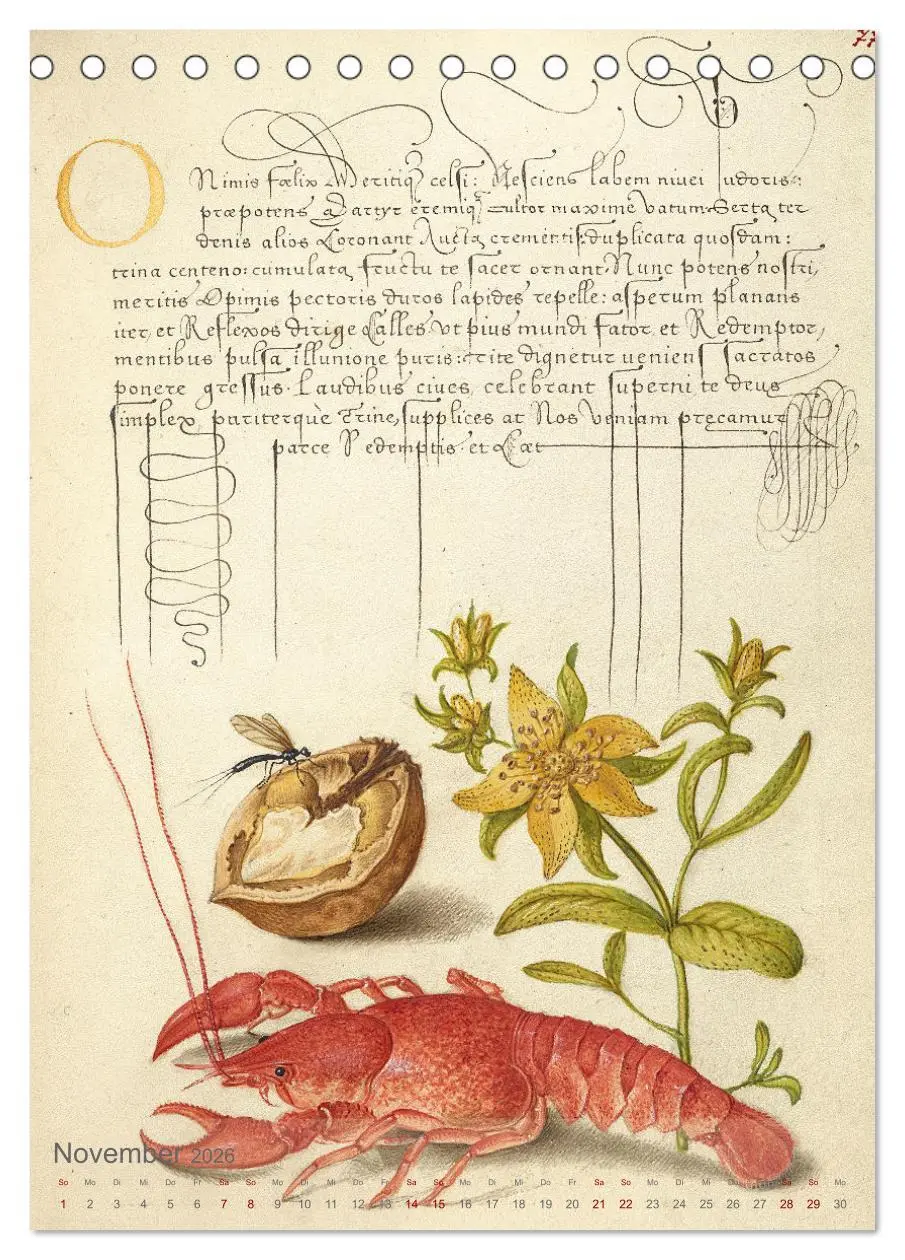 77
O Nimis fœlix Meritiq celsi: Nesciens labem niuei pudoris:
præpotens Martyr eremiq cultor maxime Vatum. Serta ter
denis alios Coronant Aucta crementis duplicata quosdam:
trina centeno: cumulata fructu te sacer ornant. Nunc potens nostri,
meritis Opimis pectoris duros lapides repelle: asperum planans
iter, et Reflexos dirige Calles. Vt pius mundi Sator, et Redemptor,
mentibus pulsa illunione puris: rite dignetur ueniens sacratos
ponere gressus. Laudibus ciues, celebrant superni te deus
simplex pariterquè Trine, supplices at Nos Veniam precamur
parce Redemptis. et Cæt
November 2026
So Mo Di Mi Do Fr Sa So Mo Di Mi Do Fr Sa So Mo Di Mi Do Fr Sa So Mo Di Mi Do Fr Sa So Mo
1 2 3 4 5 6 7 8 9 10 11 12 13 14 15 16 17 18 19 20 21 22 23 24 25 26 27 28 29 30